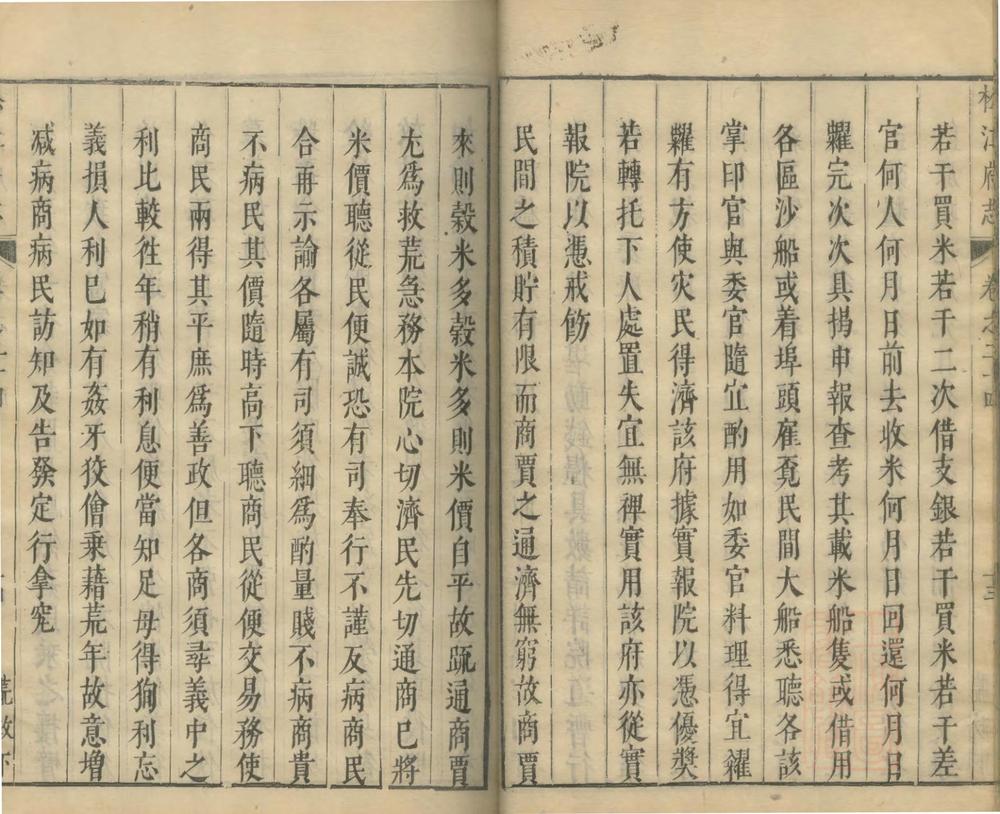 若干買米若干二次借支銀若干買米若干差
官何人何月日前去收米何月日回還何月日
糴完次次具揭申報查考其載米船隻或借用
各區沙船或着埠頭雇覔民間大船悉聽各該
掌印官與委官隨宜酌用如委官料理得宜糴
糶有方使灾民得濟該府據實報院以憑優獎
若轉托下人處置失宜無裨實用該府亦從實
報院以憑戒飭
民間之積貯有限而商賈之通濟無窮故商賈
來則穀米多穀米多則米價自平故疏通商賈
尤爲救荒急務本院心切濟民先切通商已將
米價聽從民便誠恐有司奉行不謹反病商民
合再示諭各屬有司須細爲酌量賤不病商貴
不病民其價隨時高下聽商民從便交易務使
商民兩得其平庶爲善政但各商須尋義中之
利比較徃年稍有利息便當知足毋得狥利忘
義損人利已如有姦牙狡儈乗藉荒年故意增
减病商病民訪知及告發定行拿究